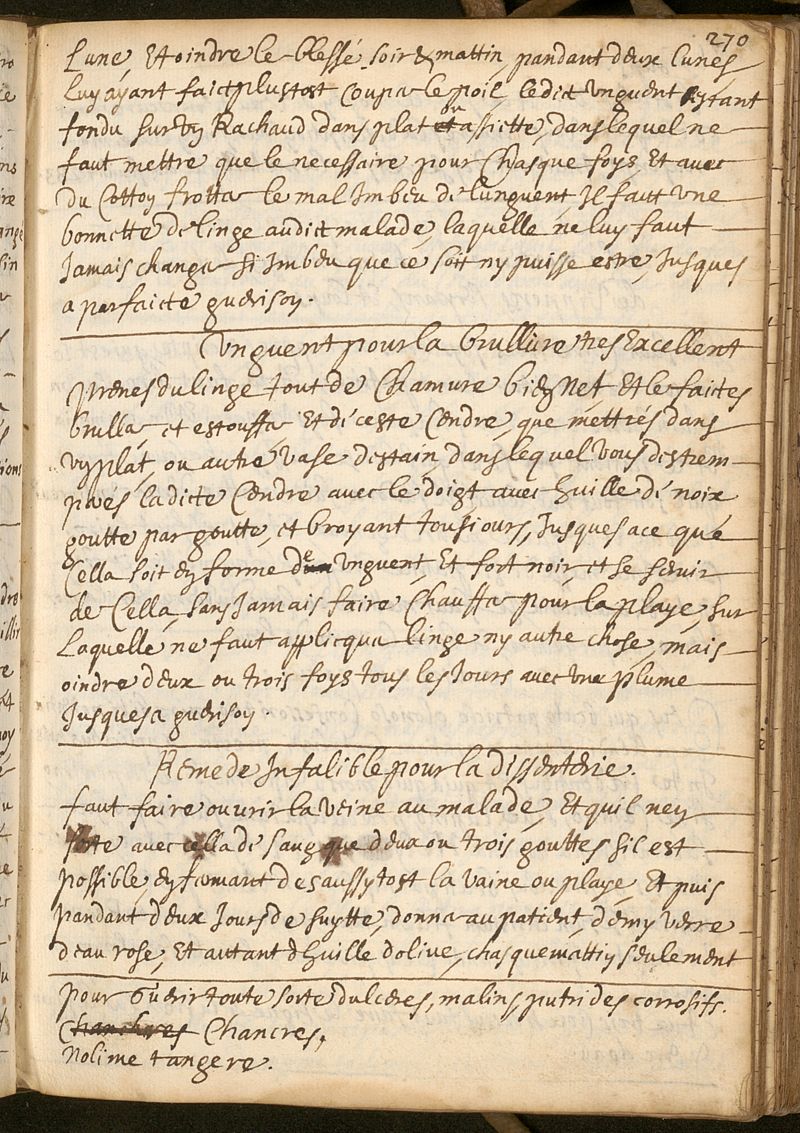 270
Lune, Et oindre le blessé soir & mattin, pandant deux Lunes
Luy ayant faict plustost Couper le poil, ledict Unguent estant
fondu sur Un Rachaud dans plat ou assiette, dans lequel ne
faut mettre que le necessaire pour Chasque foys, Et avec
du Cotton frotter le mal Imbeu de lunguent, Il fault Une
bonnette de linge audict malade, laquelle ne luy faut
Jamais changer si Imbeu que ce soit ny puisse estre, Jusques
a parfaicte guerison.
Unguent pour la brullure tres Excellent
Prenes du linge tout de Chamure bien Net Et le faites
bruller, et estouffer, Et de ceste Cendre, que mettrés dans
un plat, ou autre vase destain dans lequel vous destrem-
perés ladicte Cendre avec le doigt avec huille de noix
goutte par goutte, et broyant tousiours, Jusques a ce que
Cella soit en forme de Unguent, Et fort noir et se servir
de Cella, sans Jamais faire Chauffer pour la playe, sur
Laquelle ne faut applicquer linge ny autre chose, mais
oindre deux ou trois foys tous les Jours avec une plume
Jusques a guerison.
Remede Infalible pour la dissenterie.
faut faire ouvrir la veine au malade, Et quil ney
sorte avec cella de sang que deux ou trois gouttes sil est
possible, en fermant des aussy tost la vaine ou playe, Et puis
pandant deux Jours de suytte, donner au patient, demy verre
deau rose, Et autant dhuille dolive, chasque mattin seulement
pour Guerir toute sorte dulceres, malins, putrides corrosifs.
Chancres,
Nolime tangere.